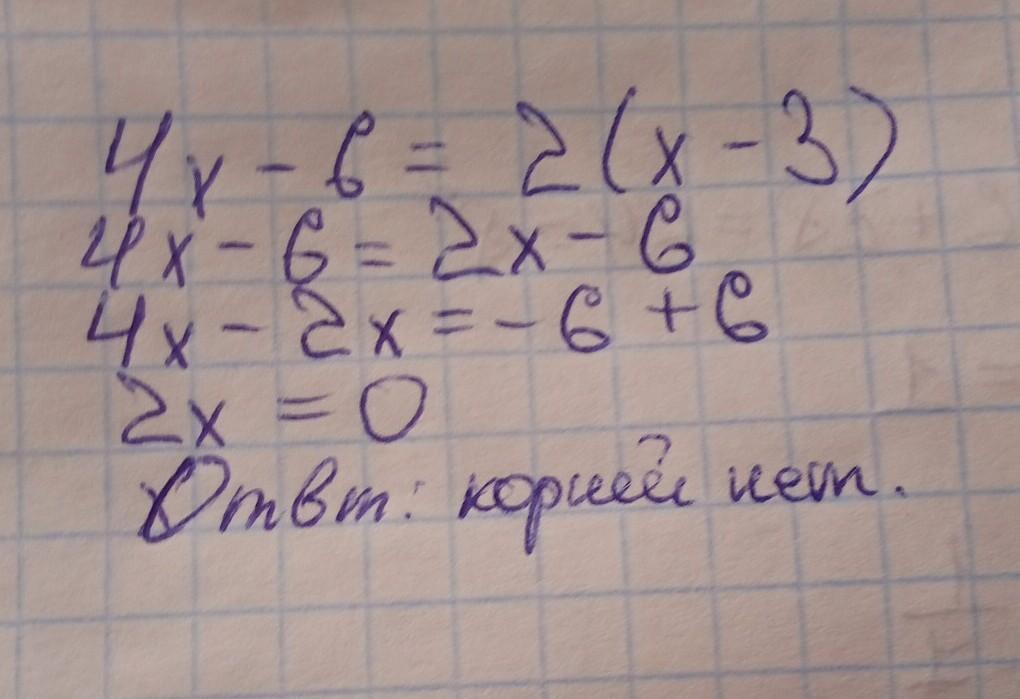 4x - 6 = 2(x - 3)
4x - 6 = 2x - 6
4x - 2x = -6 + 6
2x = 0
Ответ: корней нет.